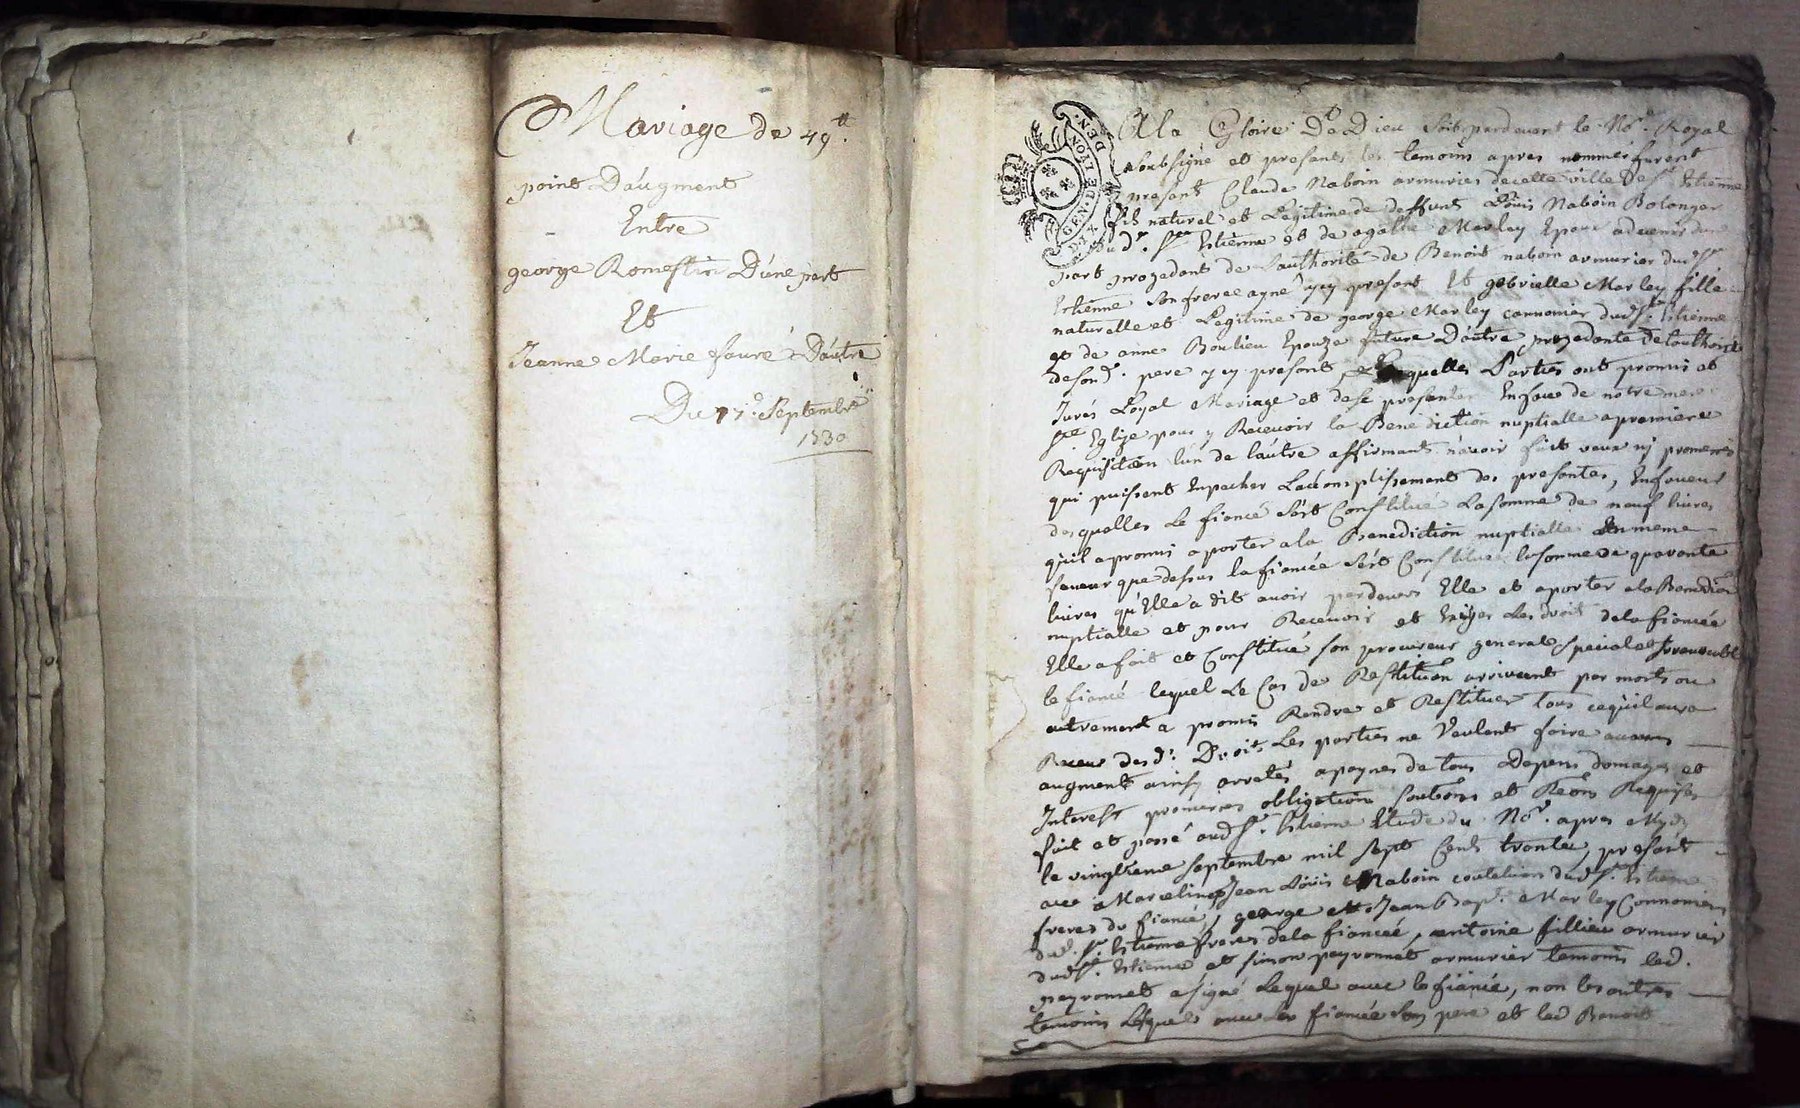 Mariage de 49.tt
point D'augment
Entre
george Romestin D'une part
Et
Jeanne Marie fauré D'autre
Du 17.e Septembre
1730
GEN. DE LYON
DIX DEN.
A la Gloire De Dieu Soit pardevant le No.re Royal
soubsigné et presents les temoins apres nommés furent
present Claude Naboin armurier decette ville de St. Estienne
fils naturel et Legitime de deffunt Loüis Naboin Bolonger
dud.t St. Estienne et de agathe Marley Epoux advenir d'une
part prozedant de Lauthorité de Benoit naboin armurier dud. St.
Estienne son frere ayné yçy present Et gabrielle Marley fille
naturelle et Legitime de george Marley cannonier dud. St. Estienne
et de anne Boulieu Epouze future D'autre prozedante de Lauthorité
de sond. pere yçy present, Lesquelles Parties ont promis et
Jurés Loyal Mariage et de se presenter En face de notre mere
ste Eglize pour y Recevoir la Benediction nuptialle a premiere
Requisition lun de lautre affirmant n'avoir fait veux ny promesses
qui puissent Enpecher Lacomplissement des presentes, En faveur
desquelles Le fiancé s'est Constitué La somme de neuf livres
qu'il a promis aporter ala Benediction nuptialle En meme
faveur que dessus la fiancée s'est Constituée la somme de quarante
livres qu'Elle a dit avoir pardevers Elle et aporter ala Benediction
nuptialle et pour Recevoir et Exiger Les droits de la fiancée
Elle a fait et Constitué son procureur general special et Irrevocable
le fiancé lequel Le Cas de Restitution arrivant par mort ou
autrement a promis Rendre et Restituer tous ce qu'il aura
Receu desd.s Droits Les parties ne Veulent faire aucun
augment ainsy arretés apeynes de tous Depens domages et
Interest promesses obligations soubmi.ons et Renon. Requises
fait et passé aud. St. Estienne Etude du No.re apres Mydy
le vingtieme septembre mil sept Cents trente, present
Marcelin et Jean Loüis Naboin coutelier dud. St. Estienne
freres du fiancé, george et Jean Bap.te Marley Cannoniers
dud. St. Estienne freres de la fiancée, antoine fillieu armurier
dud. St. Estienne et simon peyronnet armurier temoins led.
peyronnet a signé Lequel avec le fiancé, non les autres
temoins Lesquels avec la fiancée son pere et led. Benoit